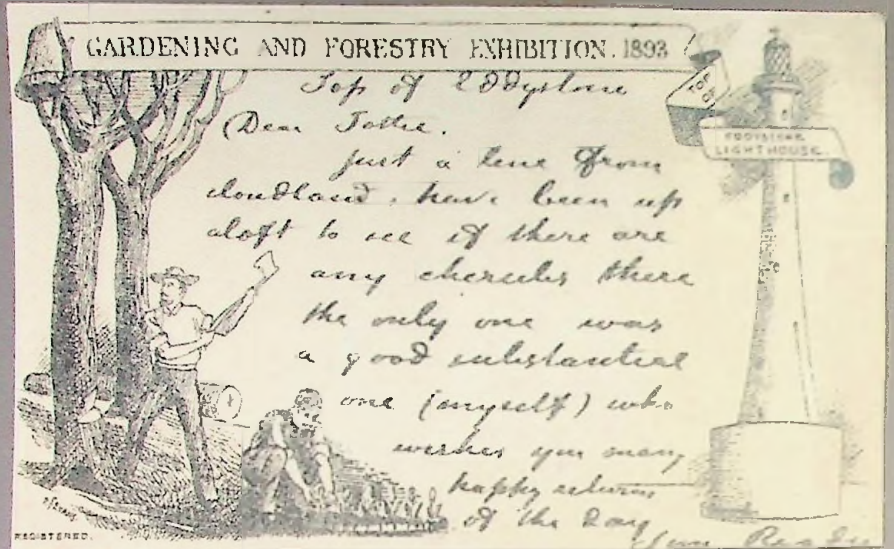 GARDENING AND FORESTRY EXHIBITION. 1893
TOP OF
EDDYSTONE
LIGHTHOUSE.
Top of Eddystone
Dear Tottie.
Just a line from
cloudland, have been up
aloft to see if there are
any cherubs there
the only one was
a good substantial
one (myself) who
wishes you many
happy returns
of the Day
REGISTERED.